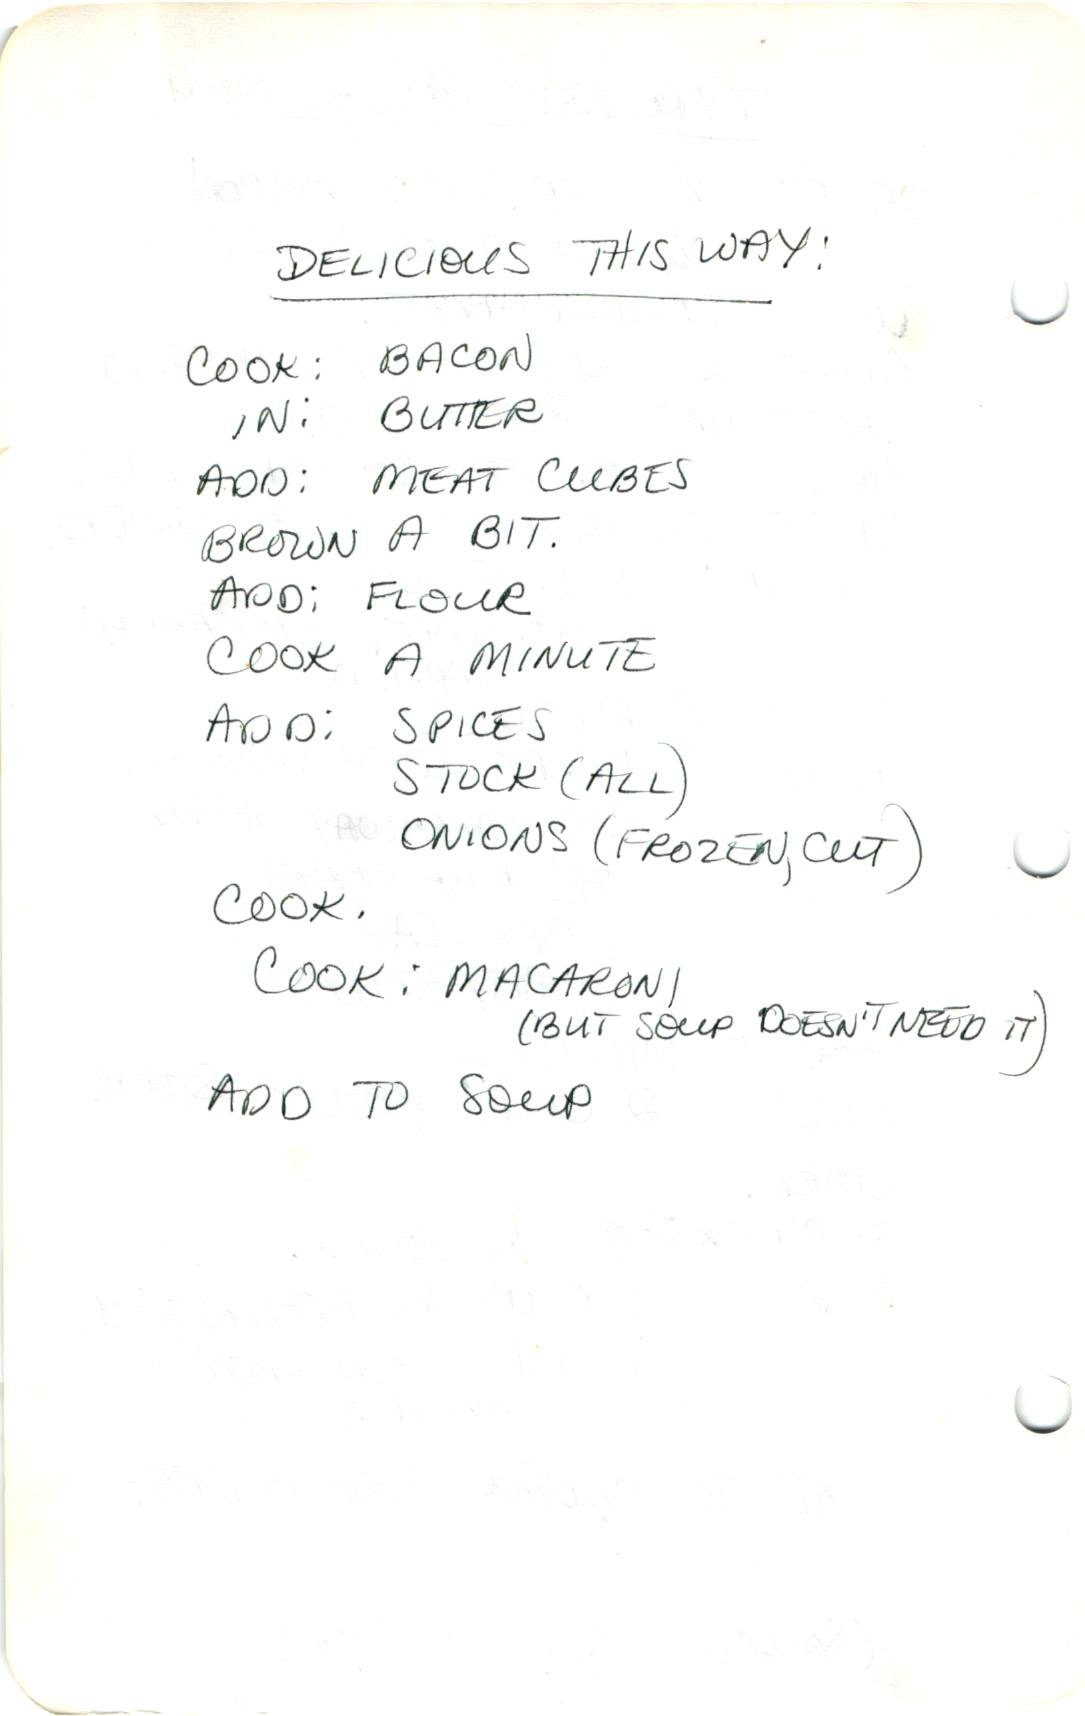 DELICIOUS THIS WAY:
COOK: BACON
IN: BUTTER
ADD: MEAT CUBES
BROWN A BIT.
ADD: FLOUR
COOK A MINUTE
ADD: SPICES
STOCK (ALL)
ONIONS (FROZEN, CUT)
COOK.
COOK: MACARONI
(BUT SOUP DOESN'T NEED IT)
ADD TO SOUP